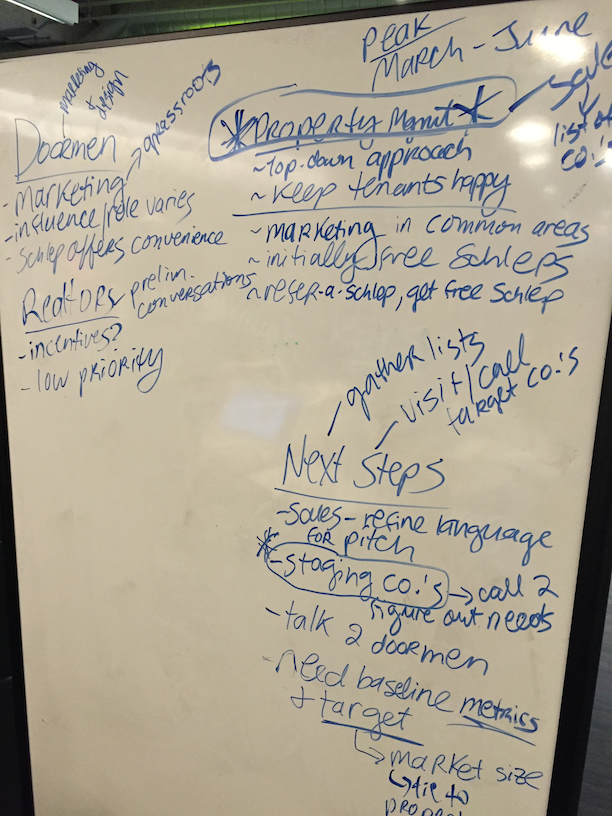 Peak
March - June
marketing
& design
Doormen
- Marketing → grassroots
- influence/role varies
- Schlep offers convenience
Realtors prelim. conversations
- incentives?
- low priority
* Property Mgmt *
sale
list of
co.'s
~ top-down approach
~ keep tenants happy
~ marketing in common areas
~ initially free Schleps
~ refer-a-schlep, get free Schlep
gather lists
visit/call
target co.'s
Next Steps
- Sales - refine language
for pitch
* - staging co.'s → call 2
figure out needs
- talk 2 doormen
- need baseline metrics
+ target
↳ market size
↳ tie to